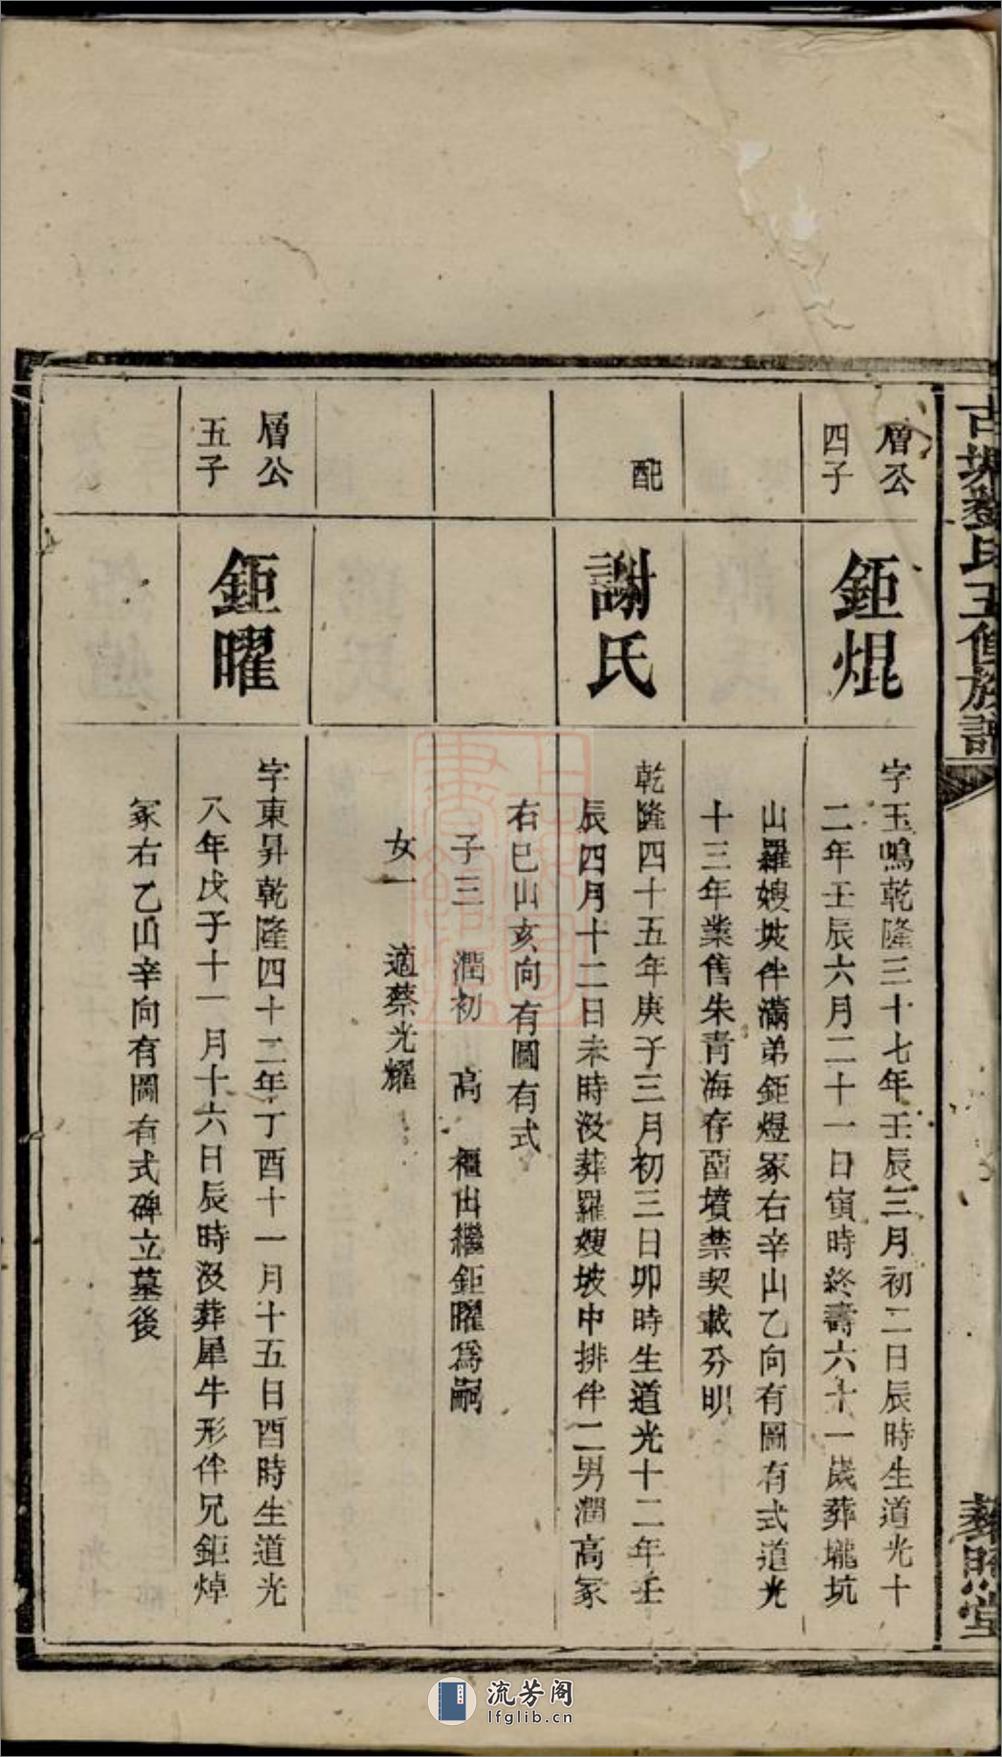 古塘鄧氏五修族譜
藜照堂
層公
四子
鉅焜
字玉鳴乾隆三十七年壬辰三月初二日辰時生道光十
二年壬辰六月二十一日寅時終壽六十一歲葬壠坑
山羅嫂坡伴滿弟鉅煜冢右辛山乙向有圖有式道光
十三年業售朱青海存畱墳禁契載分明
配
謝氏
乾隆四十五年庚子三月初三日卯時生道光十二年壬
辰四月十二日未時沒葬羅嫂坡中排伴二男潤高冢
右巳山亥向有圖有式
子三 潤初 高 櫃出繼鉅曜爲嗣
女一 適蔡光耀
層公
五子
鉅曜
字東昇乾隆四十二年丁酉十一月十五日酉時生道光
八年戊子十一月十六日辰時沒葬犀牛形伴兄鉅焯
冢右乙山辛向有圖有式碑立墓後
流芳阁
lfglib.cn